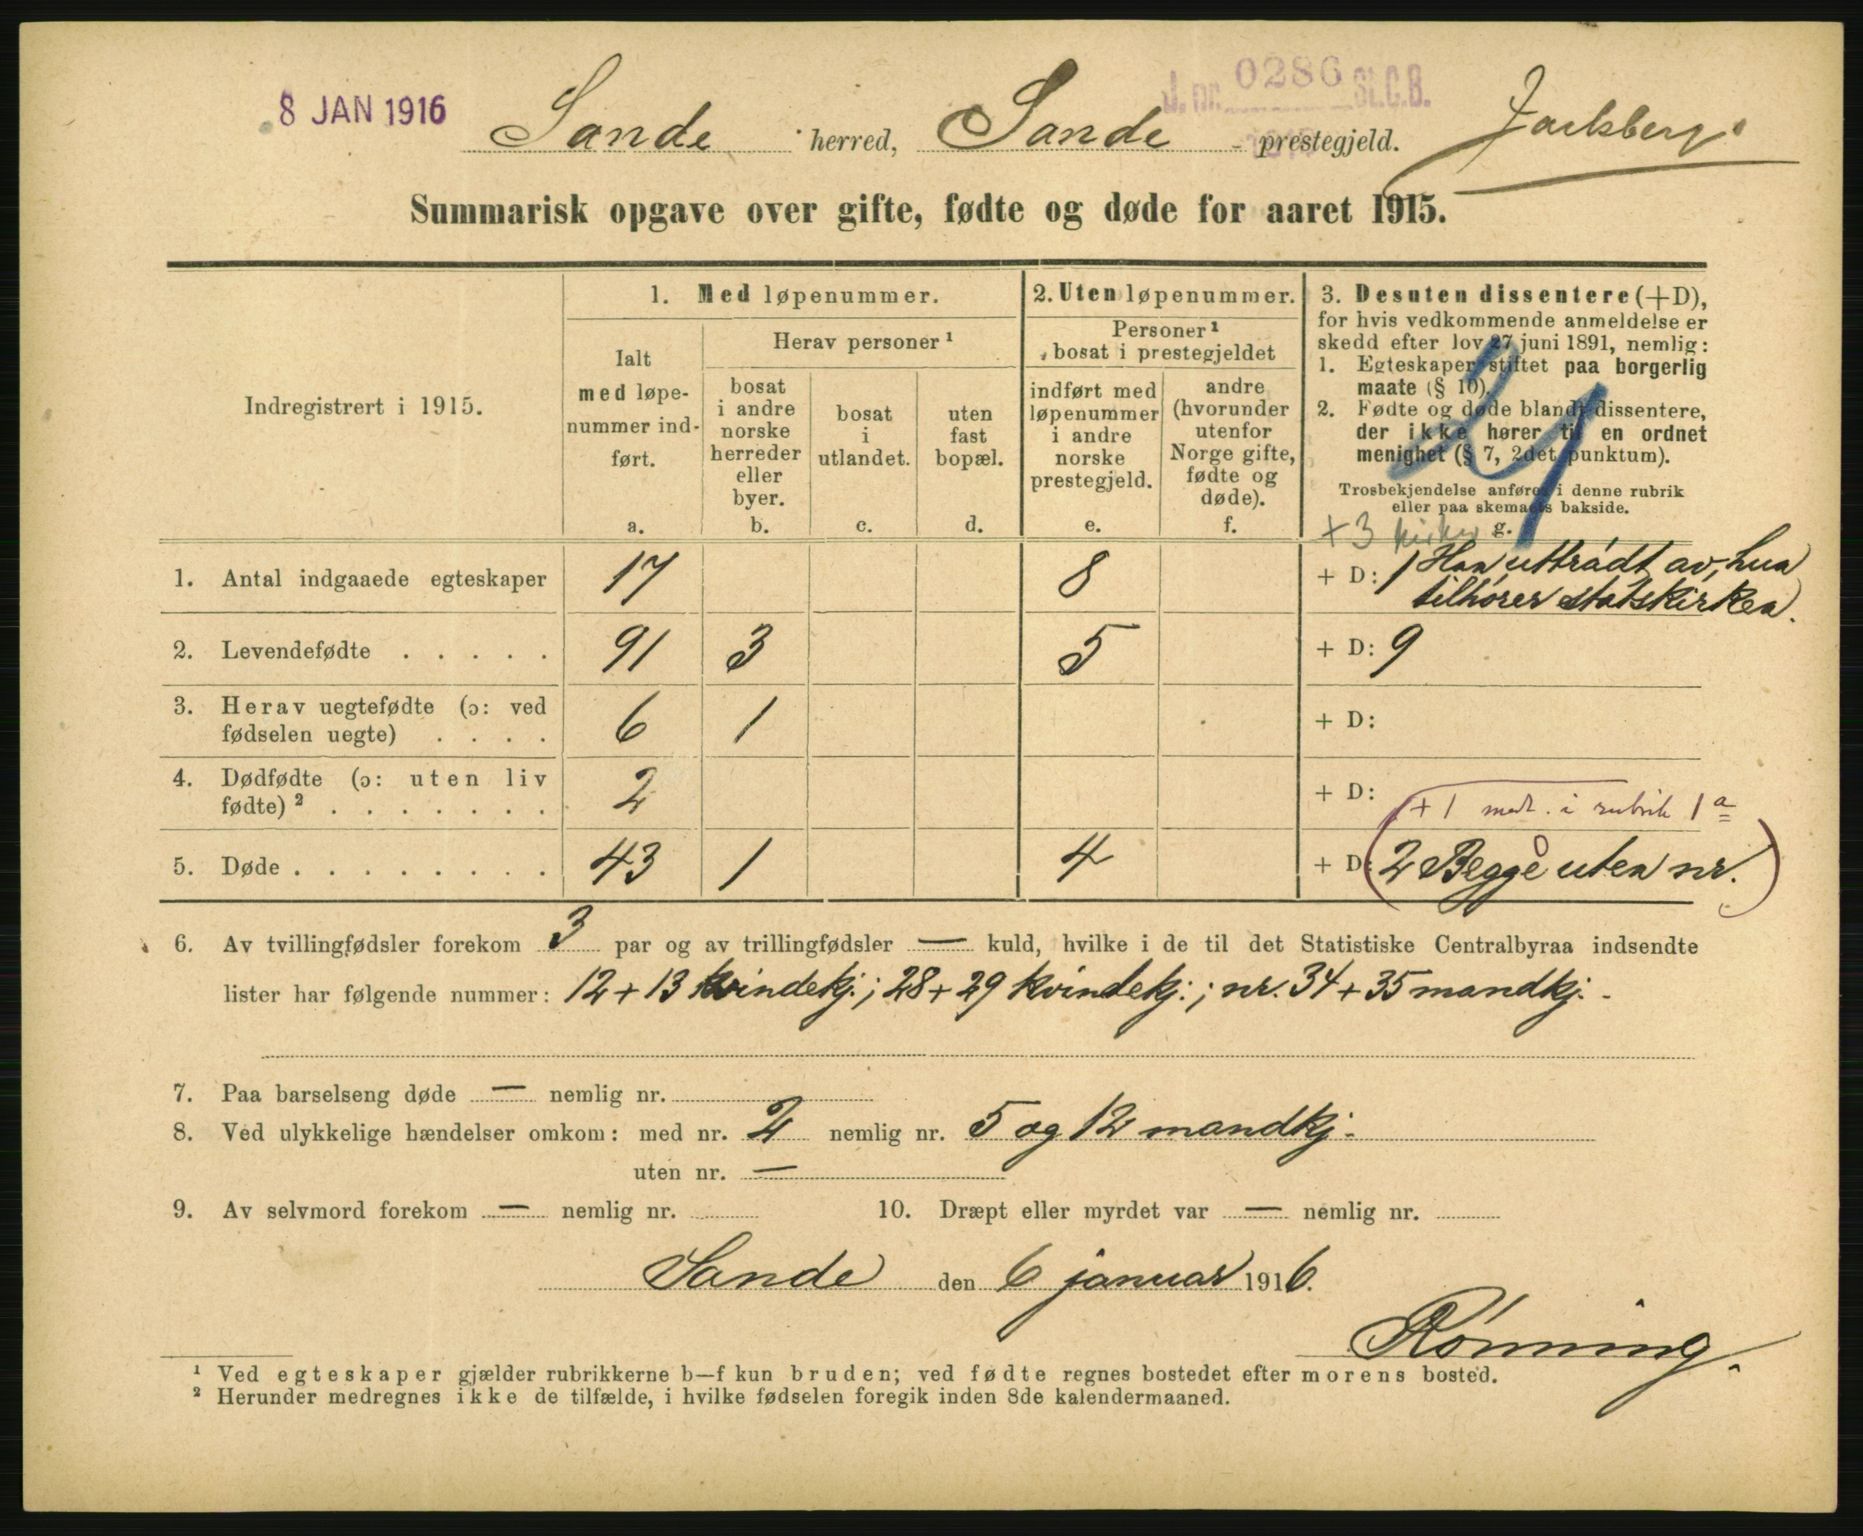 8 JAN 1916
J. nr. 0286 St.C.B.
Sande herred, Sande prestegjeld. Jarlsberg
Summarisk opgave over gifte, fødte og døde for aaret 1915.
Indregistrert i 1915.
1. Med løpenummer.
Ialt
med løpe-
nummer ind-
ført.
a.
Herav personer ¹
bosat
i andre
norske
herreder
eller
byer.
b.
bosat
i
utlandet.
c.
uten
fast
bopæl.
d.
2. Uten løpenummer.
Personer ¹
bosat i prestegjeldet
indført med
løpenummer
i andre
norske
prestegjeld.
e.
andre
(hvorunder
utenfor
Norge gifte,
fødte og
døde).
f.
3. Desuten dissentere (+D),
for hvis vedkommende anmeldelse er
skedd efter lov 27 juni 1891, nemlig:
1. Egteskaper stiftet paa borgerlig
maate (§ 10).
2. Fødte og døde blandt dissentere,
der ikke hører til en ordnet
menighet (§ 7, 2det punktum).
Trosbekjendelse anføres i denne rubrik
eller paa skemaets bakside.
+3 g.
1. Antal indgaaede egteskaper 17 8 + D: 1 Han uttrådt av, hun
tilhører statskirken.
2. Levendefødte . . . . . 91 3 5 + D: 9
3. Herav uegtefødte (ɔ: ved
fødselen uegte) . . . . 6 1 + D:
4. Dødfødte (ɔ: uten liv
fødte) ² . . . . . . . 2 + D:
+1 med. i rubrik 1 a
5. Døde . . . . . . . . 43 1 4 + D: 2 Begge uten nr.
6. Av tvillingfødsler forekom 3 par og av trillingfødsler — kuld, hvilke i de til det Statistiske Centralbyraa indsendte
lister har følgende nummer: 12 + 13 kvindekj.; 28 + 29 kvindekj.; nr. 34 + 35 mandkj.
7. Paa barselseng døde — nemlig nr.
8. Ved ulykkelige hændelser omkom: med nr. 2 nemlig nr. 5 og 12 mandkj.
uten nr. —
9. Av selvmord forekom — nemlig nr. 10. Dræpt eller myrdet var — nemlig nr.
Sande den 6 januar 1916.
Rønning.
¹ Ved egteskaper gjælder rubrikkerne b—f kun bruden; ved fødte regnes bostedet efter morens bosted.
² Herunder medregnes ikke de tilfælde, i hvilke fødselen foregik inden 8de kalendermaaned.